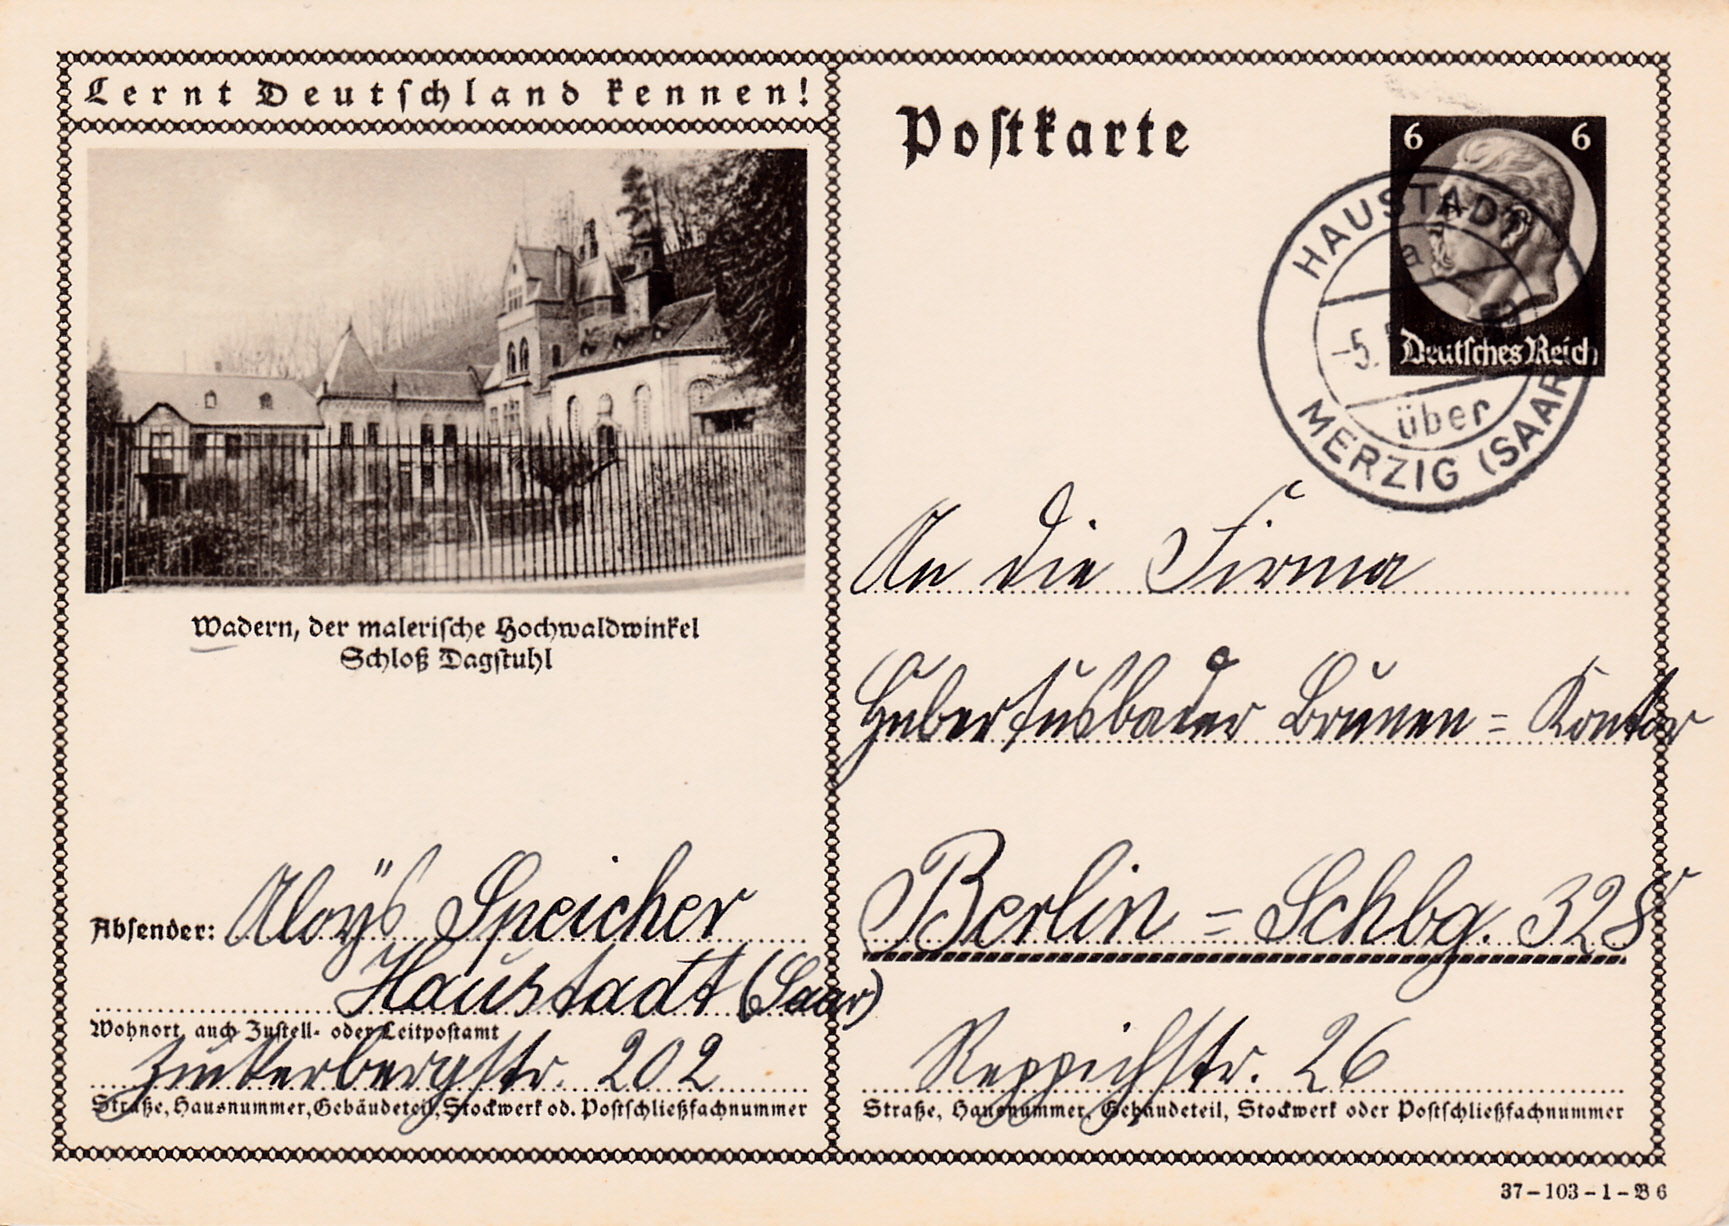 Lernt Deutschland kennen!
Wadern, der malerische Hochwaldwinkel
Schloß Dagstuhl
Absender: Aloÿs Speicher
Haustadt (Saar)
Wohnort, auch Zustell- oder Leitpostamt
Zinkerbergstr. 202
Straße, Hausnummer, Gebäudeteil, Stockwerk od. Postschließfachnummer
Postkarte
6 6
Deutsches Reich
HAUSTADT
a
-5.
über
MERZIG (SAAR)
An die Firma
Hubertusbader Brunen = Kontor
Berlin = Schbg. 328
Reppichstr. 26
Straße, Hausnummer, Gebäudeteil, Stockwerk oder Postschließfachnummer
37-103-1-B 6